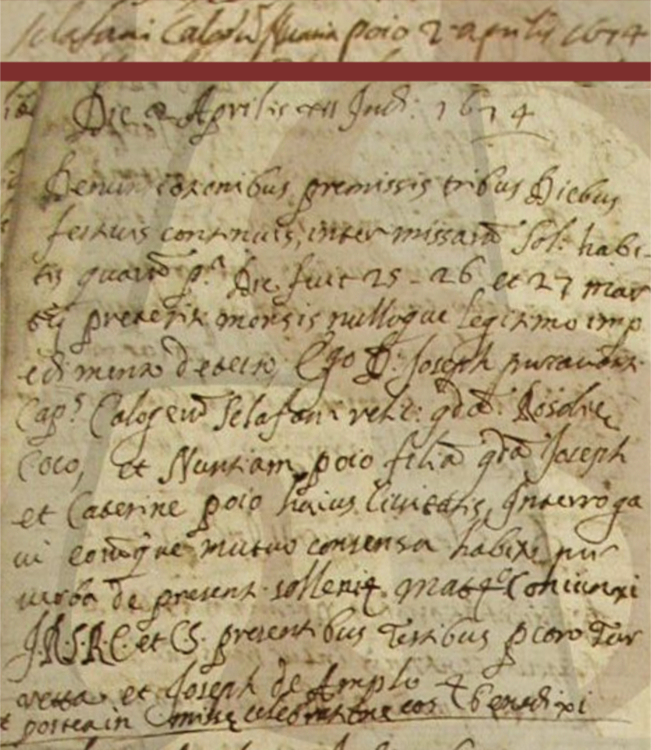 Sclafani Calog: Nunia poio 2 aprilis 1674
Die 2 Aprilis xii Ind: 1674
Denunciationibus premissis tribus Diebus
festivis continuis, inter missarũ Sol: habi-
tis quarũ pª Die fuit 25 - 26 et 27 mar
tij preteriti mensis nulloque legitimo imp
edimento detecto, Ego D: Joseph
Cap.s Calogerũ Sclafani relic: qdã Rosalie
Coco, et Nuntiam poio filiã qdã Joseph
et Caterine poio huius Civitatis, Interroga
vi eorũque mutuo consensu habito, per
verba de present: sollenit. matrº Coniunxi
J.R.S.R.C. et C.S. presentibus Testibus petro Tur
retta et Joseph de Amplo &
postea in missę celebratione eos benedixi